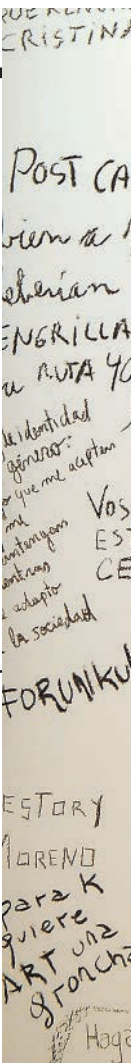 CRISTINA
POST CA
bien a
deberían
ENGRILLA
RUTA 40
de identidad
género:
o que me acepten
me
mantengan
entras
adapto
la sociedad
VOS
EST
CE
FORUNKU
ESTORY
MORENO
para K
quiere
ART una
groncha
Haga